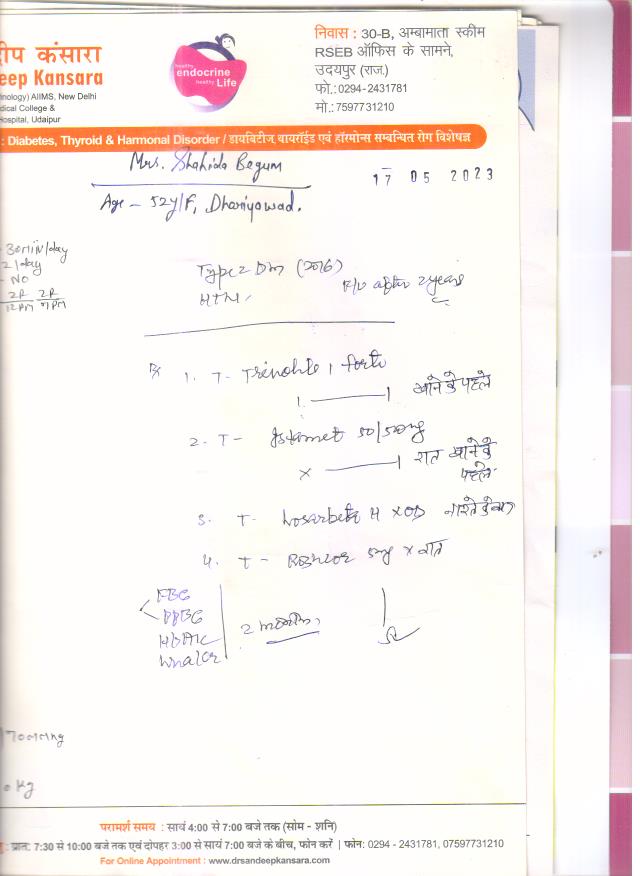 दीप कंसारा
eep Kansara
nology) AIIMS, New Delhi
dical College &
Hospital, Udaipur
healthy
endocrine
healthy Life
निवास : 30-B, अम्बामाता स्कीम
RSEB ऑफिस के सामने,
उदयपुर (राज.)
फो.:0294-2431781
मो.: 7597731210
: Diabetes, Thyroid & Harmonal Disorder / डायबिटीज, थायरॉईड एवं हॉरमोन्स सम्बन्धित रोग विशेषज्ञ
Mrs. Shahida Begum
17 05 2023
Age - 52y/F, Dhariyawad.
- 30min/day
2/day
- NO
2R 2R
12PM 7PM
Type 2 Dm (2016)
HTN
F/U after 2 years
Rx 1. T- forte
1 ——— 1 खाने के पहले
2. T- Istamet 50/500mg
x ——— 1 रात खाने के पहले
3. T- H x OD
4. T- 5mg x रात
FBG
PPBG
HbA1c
2 months
70
0 Kg
परामर्श समय : सायं 4:00 से 7:00 बजे तक (सोम - शनि)
: प्रात: 7:30 से 10:00 बजे तक एवं दोपहर 3:00 से सायं 7:00 बजे के बीच, फोन करें | फोन: 0294 - 2431781, 07597731210
For Online Appointment : www.drsandeepkansara.com